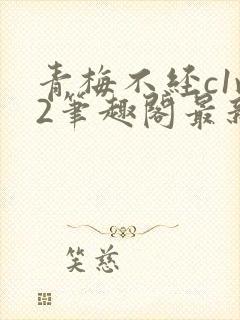 青梅不经c1v
2笔趣阁最新
笑慈